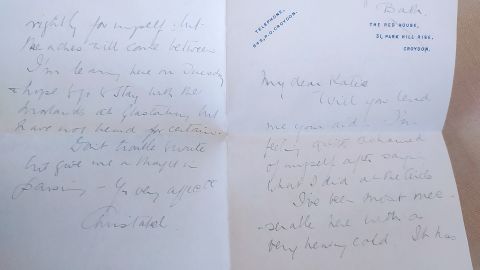 Bath.
TELEPHONE,
P.O. CROYDON.
THE RED HOUSE,
31, PARK HILL RISE,
CROYDON.
My dear Katie
Will you lend
me your aid. I'm
feeling quite ashamed
of myself after saying
what I did at the
I've been most mis-
-erable here with a
very heavy cold. It has
rightly for myself - but
the aches will come between
I'm leaving here on Tuesday
& hope to go & stay with the
at Glastonbury but
have not heard for certain.
Dont trouble to write
but give me a thought in
passing - Yr very affecte
Christabel.